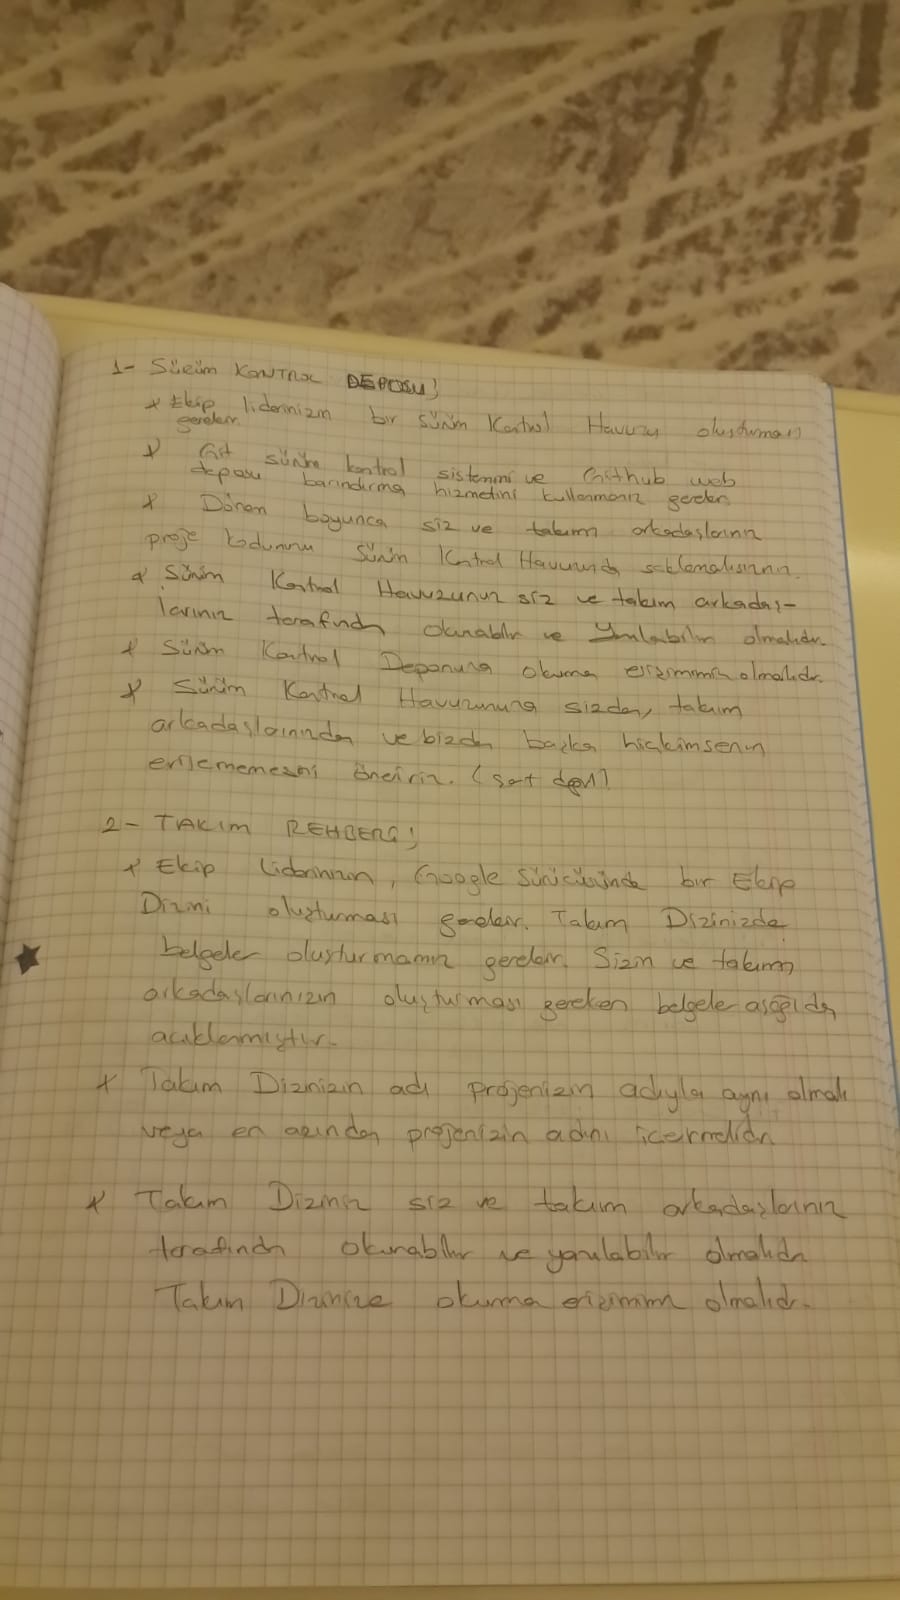 1- SÜRÜM KONTROL DEPOSU!
* Ekip liderinizin bir sürüm Kontrol Havuzu oluşturması
gereken
* Git sürüm kontrol sistemini ve Github web
deposu barındırma hizmetini kullanmanız gereken
* Dönem boyunca siz ve takım arkadaşlarınız
proje kodununu sürüm Kontrol Havuzunda saklamalısınız.
* Sürüm Kontrol Havuzunuz siz ve takım arkadaş-
larınız tarafından okunabilir ve olmalıdır.
* Sürüm Kontrol Deponuza okuma erişimimiz olmalıdır.
* Sürüm Kontrol Havuzunuza sizden, takım
arkadaşlarınızdan ve bizden başka hiçkimsenin
erişememesini öneririz. (şart değil)
2- TAKIM REHBERİ!
* Ekip Liderinizin, Google Sürücüsünde bir Ekip
Dizini oluşturması gereken. Takım Dizinizde
belgeler oluşturmanız gereken. Sizin ve takım
arkadaşlarınızın oluşturması gereken belgeler aşağıda
açıklanmıştır.
* Takım Dizinizin adı projenizin adıyla aynı olmalı
veya en azından projenizin adını içermelidir
* Takım Diziniz siz ve takım arkadaşlarınız
tarafından okunabilir ve yazılabilir olmalıdır
Takım Dizinize okuma erişimimiz olmalıdır.